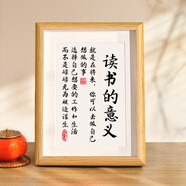 读书的意义
就是在将来,你可以去做自己
想做的事
选择自己想要的工作和生活
而不是碌碌无为被迫谋生